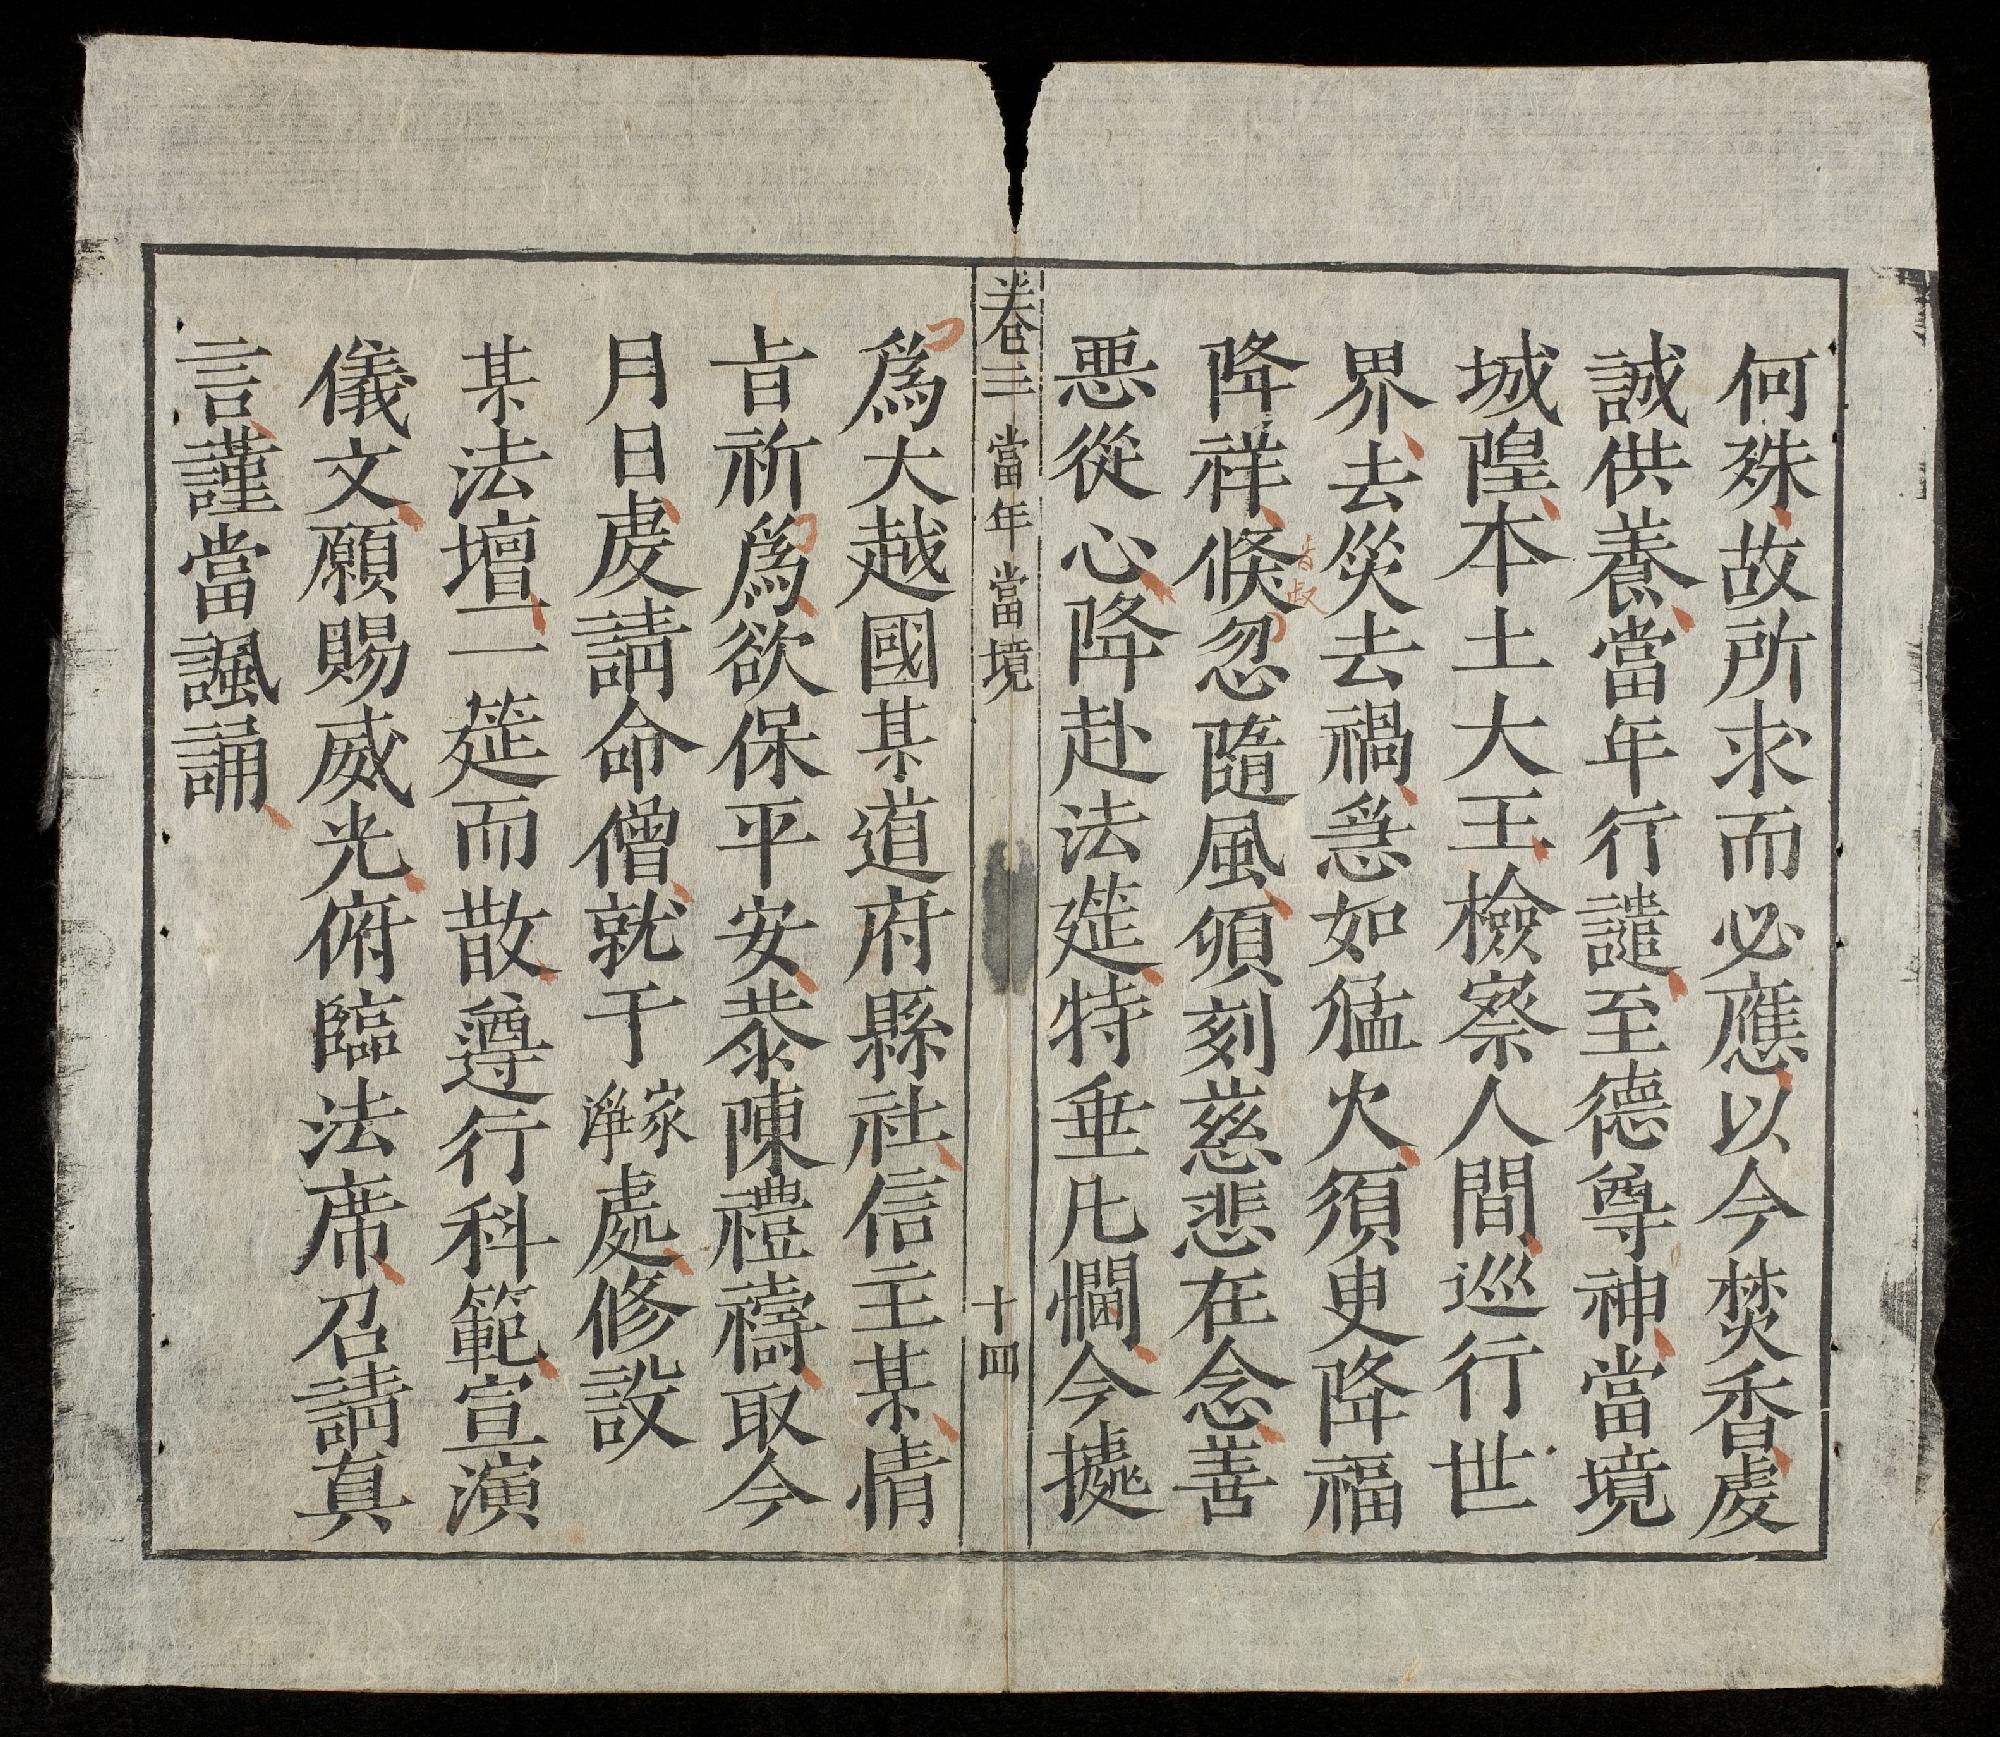 何殊故所求而必應以今焚香虔
誠供養當年行譴至德尊神當境
城隍本土大王檢察人間巡行世
界去災去禍急如猛火須臾降福
降祥倐忽隨風頃刻慈悲在念善
音叔
悪從心降赴法筵特垂凡憫今據
卷三 當年當境 十四
為大越國某道府縣社信主某情
旨祈為欲保平安恭陳禮禱取今
月日虔請命僧就于家浄處修設
某法壇一筵而散遵行科範宣演
儀文願賜威光俯臨法席召請真
言謹當諷誦